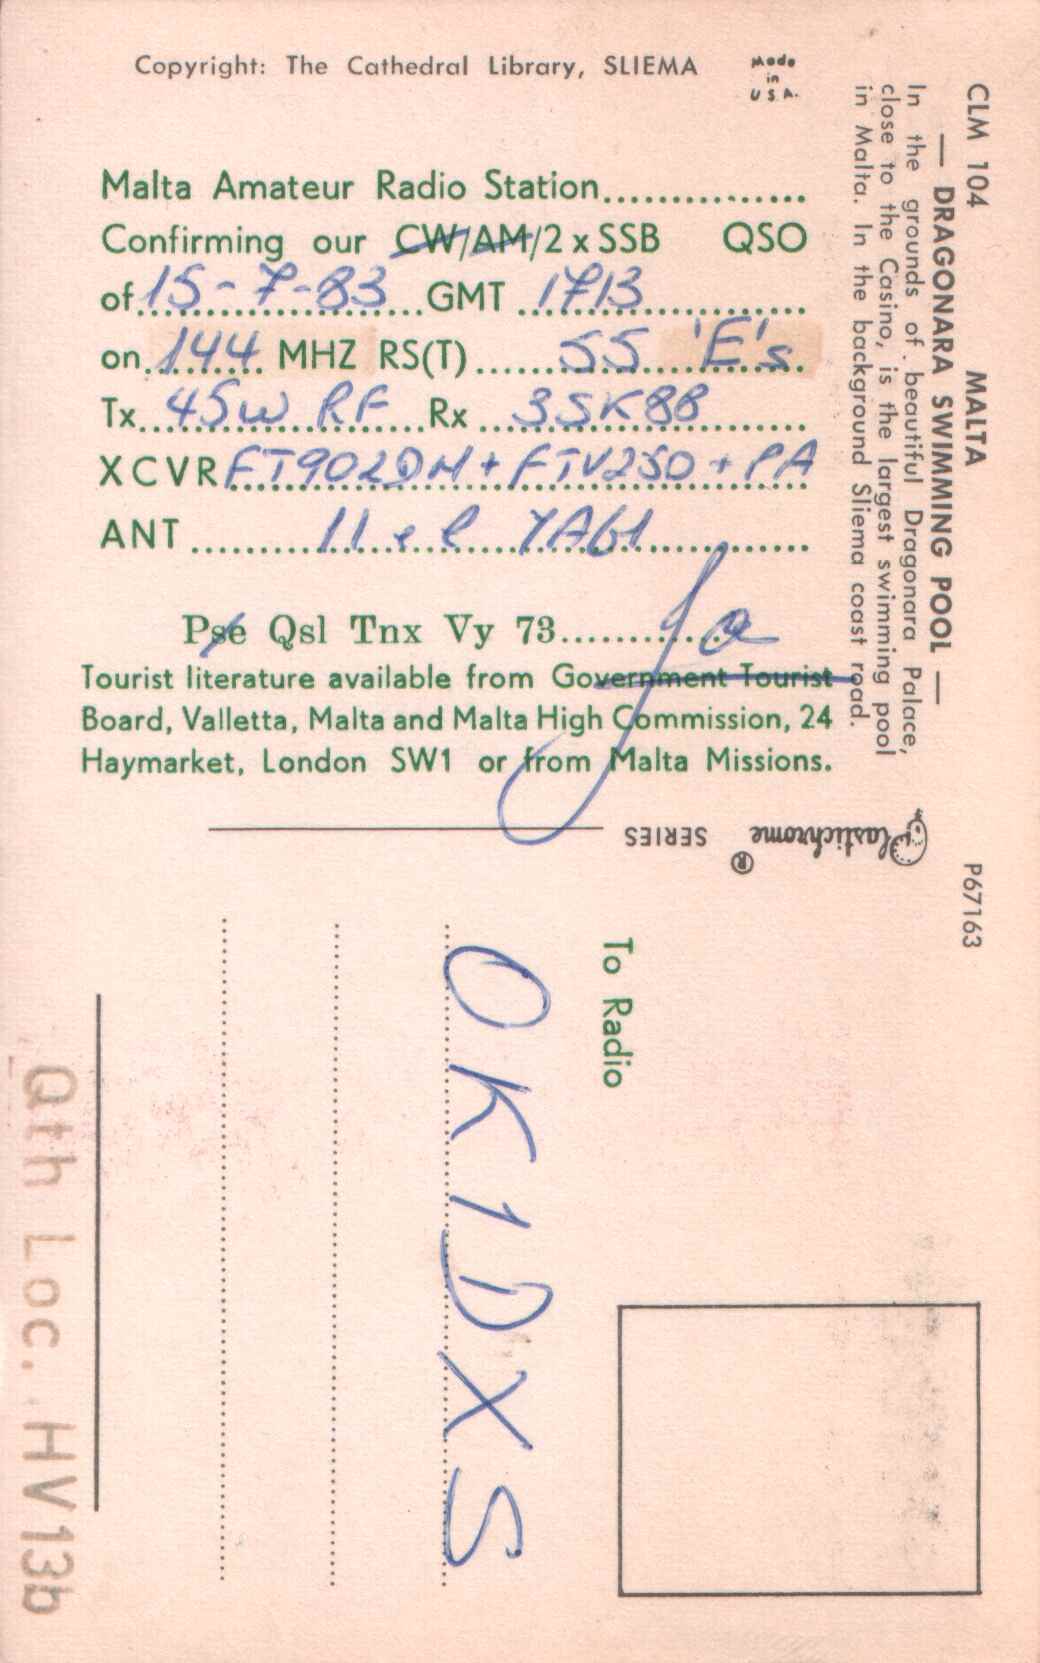 Copyright: The Cathedral Library, SLIEMA
Made
in
U S A.
Malta Amateur Radio Station...............
Confirming our CW/AM/2 x SSB QSO
of 15-7-83 GMT 1713
on 144 MHZ RS(T) 55 'E's
Tx 45W RF Rx 3SK88
XCVR FT902DM + FTV250 + PA
ANT 11 el YAGI
Pse Qsl Tnx Vy 73
Tourist literature available from Government Tourist
Board, Valletta, Malta and Malta High Commission, 24
Haymarket, London SW1 or from Malta Missions.
CLM 104 MALTA
— DRAGONARA SWIMMING POOL —
In the grounds of beautiful Dragonara Palace,
close to the Casino, is the largest swimming pool
in Malta. In the background Sliema coast road.
Plastichrome ® SERIES
P67163
To Radio
OK1DXS
Qth Loc. HV13b